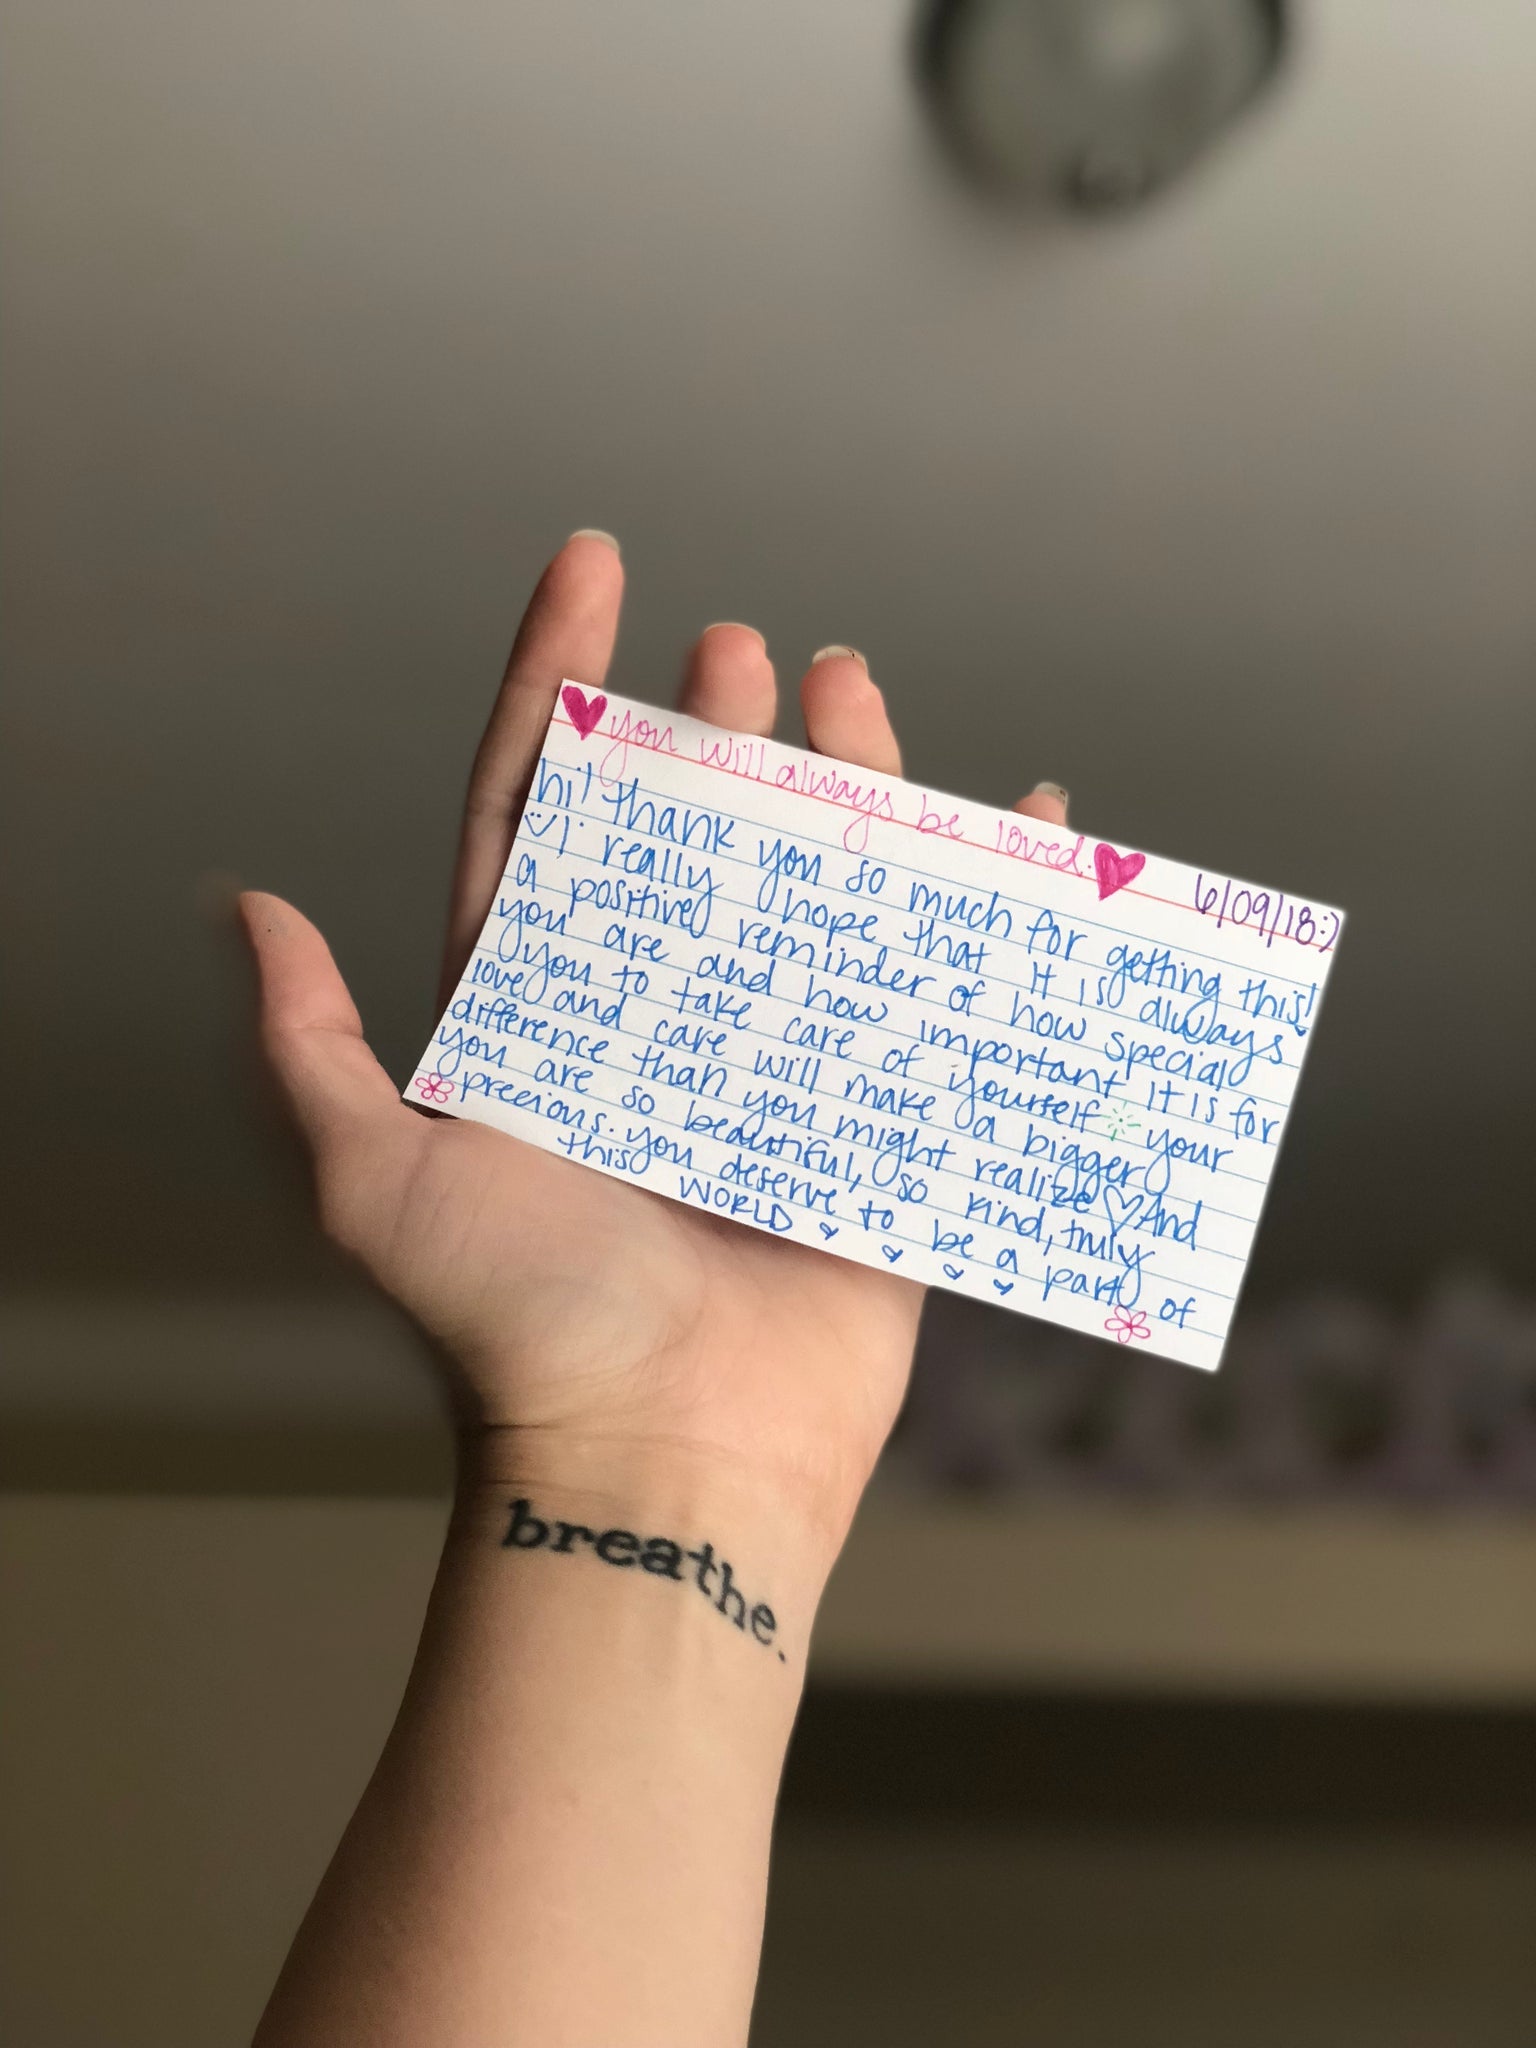 you will always be loved.
6/09/18:)
hi! thank you so much for getting this!
i really hope that it is always
a positive reminder of how special
you are and how important it is for
you to take care of yourself your
love and care will make a bigger
difference than you might realize And
you are so beautiful, so kind, truly
precious. you deserve to be a part of
this WORLD
breathe.